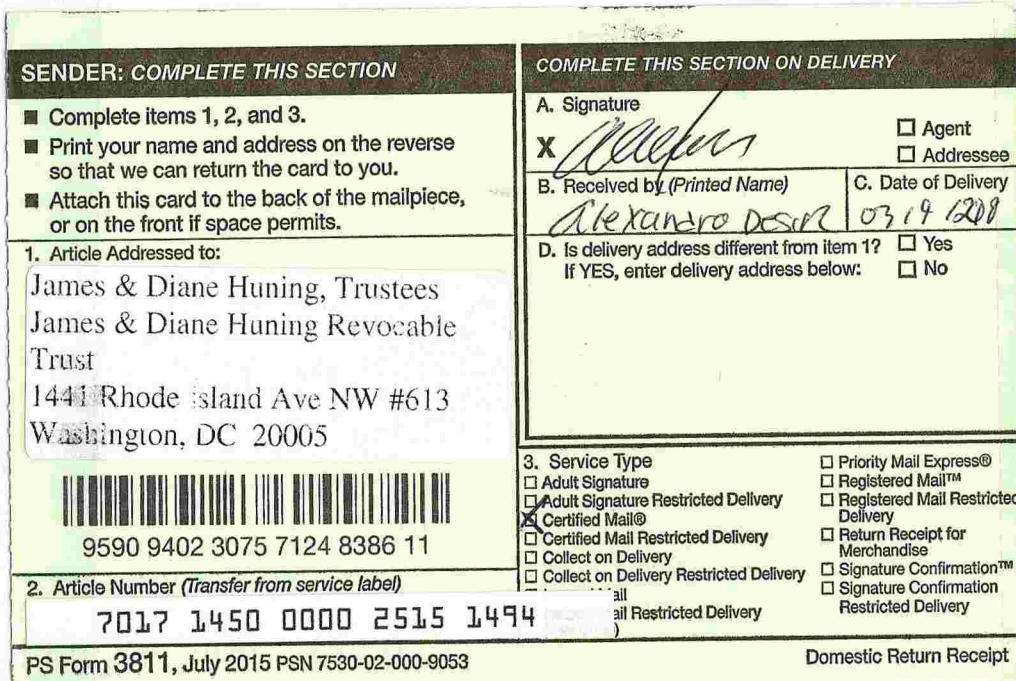 SENDER: COMPLETE THIS SECTION
■ Complete items 1, 2, and 3.
■ Print your name and address on the reverse
so that we can return the card to you.
■ Attach this card to the back of the mailpiece,
or on the front if space permits.
1. Article Addressed to:
James & Diane Huning, Trustees
James & Diane Huning Revocable
Trust
1441 Rhode Island Ave NW #613
Washington, DC 20005
9590 9402 3075 7124 8386 11
2. Article Number (Transfer from service label)
7017 1450 0000 2515 1494
COMPLETE THIS SECTION ON DELIVERY
A. Signature
X
☐ Agent
☐ Addressee
B. Received by (Printed Name)
Alexandro
C. Date of Delivery
D. Is delivery address different from item 1? ☐ Yes
If YES, enter delivery address below: ☐ No
3. Service Type
☐ Adult Signature
☐ Adult Signature Restricted Delivery
☒ Certified Mail®
☐ Certified Mail Restricted Delivery
☐ Collect on Delivery
☐ Collect on Delivery Restricted Delivery
ail
ail Restricted Delivery
)
☐ Priority Mail Express®
☐ Registered Mail™
☐ Registered Mail Restricted
Delivery
☐ Return Receipt for
Merchandise
☐ Signature Confirmation™
☐ Signature Confirmation
Restricted Delivery
PS Form 3811, July 2015 PSN 7530-02-000-9053
Domestic Return Receipt